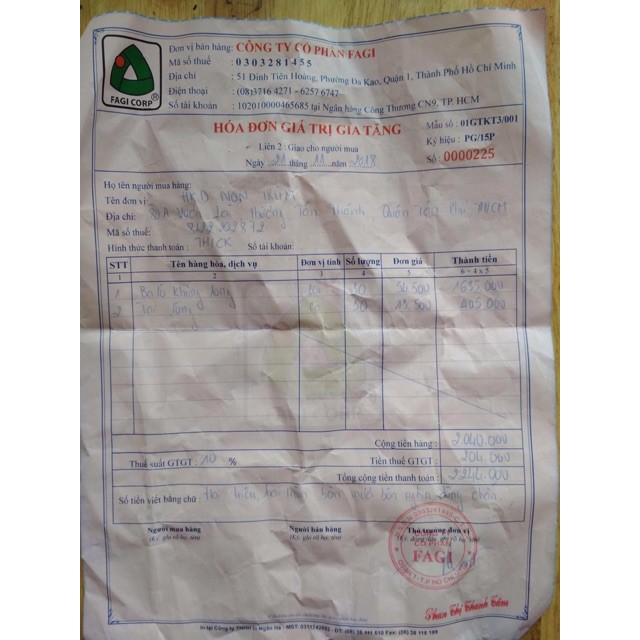 FAGI CORP ®
Đơn vị bán hàng: CÔNG TY CỔ PHẦN FAGI
Mã số thuế : 0303281455
Địa chỉ : 51 Đinh Tiên Hoàng, Phường Đa Kao, Quận 1, Thành Phố Hồ Chí Minh
Điện thoại : (08)3716 4271 - 6257 6747
Số tài khoản : 102010000465685 tại Ngân hàng Công Thương CN9, TP. HCM
HÓA ĐƠN GIÁ TRỊ GIA TĂNG
Mẫu số : 01GTKT3/001
Liên 2 : Giao cho người mua
Ký hiệu : PG/15P
Ngày 21 tháng 11 năm 2018
Số : 0000225
Họ tên người mua hàng:
Tên đơn vị: HKD NON
Địa chỉ: Vườn Lài Phường Tân Thành, Quận Tân Phú HCM
Mã số thuế:
Hình thức thanh toán: TM/CK Số tài khoản:
STT Tên hàng hóa, dịch vụ Đơn vị tính Số lượng Đơn giá Thành tiền
1 2 3 4 5 6 = 4 x 5
1 Balo khủng long 30 54.500 1635.000
2 30 13.500 405.000
Cộng tiền hàng : 2.040.000
Thuế suất GTGT : 10 % Tiền thuế GTGT : 204.000
Tổng cộng tiền thanh toán : 2.244.000
Số tiền viết bằng chữ : Hai triệu hai trăm bốn mươi bốn nghìn đồng chẵn.
Người mua hàng Người bán hàng Thủ trưởng đơn vị
(Ký, ghi rõ họ, tên) (Ký, ghi rõ họ, tên)
CỔ PHẦN
FAGI
Phan Thị Thanh Tâm